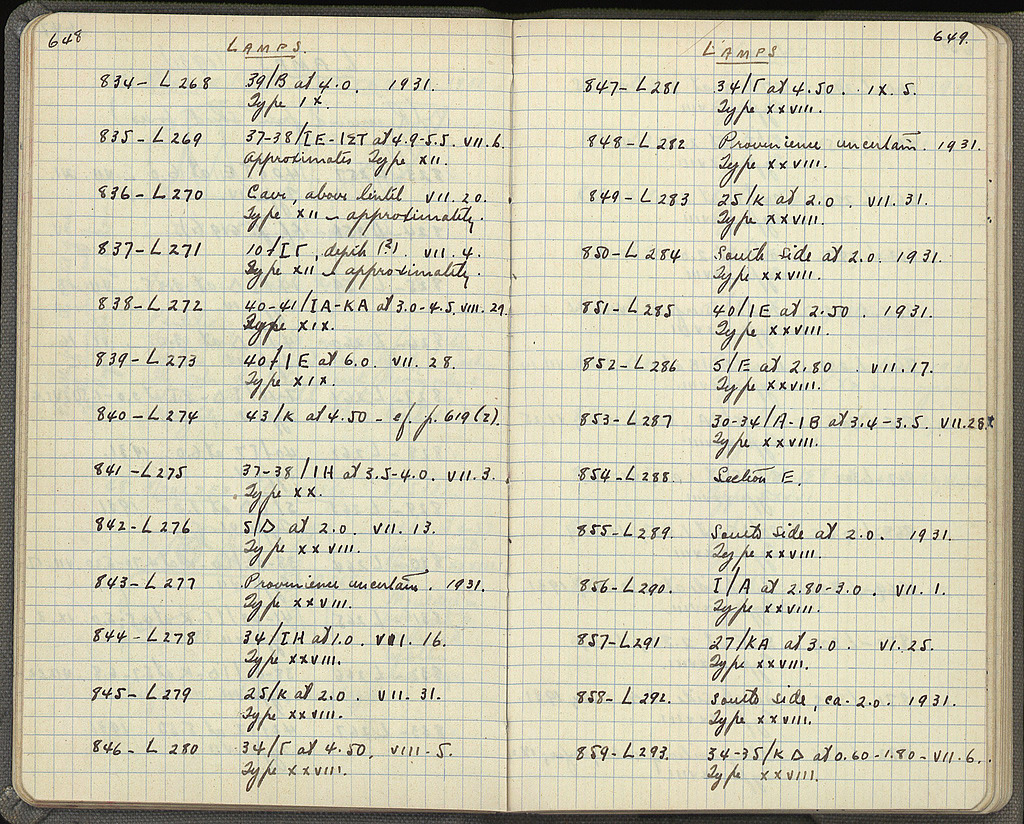 648
LAMPS.
834 - L 268 39/B at 4.0. 1931.
Type IX.
835 - L 269 37-38/ΙΕ-ΙΣΤ at 4.9-5.5. VII.6.
approximates Type XII.
836 - L 270 Cave, above lintil VII. 20.
Type XII - approximately.
837 - L 271 10/ΙΓ, depth (?) VII. 4.
Type XII - approximately.
838 - L 272 40-41/ΙΑ-ΚΑ at 3.0-4.5. VIII. 29.
Type XIX.
839 - L 273 40/ΙΕ at 6.0. VII. 28.
Type XIX.
840 - L 274 43/K at 4.50 - cf. p. 619 (2).
841 - L 275 37-38/ΙΗ at 3.5-4.0. VII. 3.
Type XX.
842 - L 276 5/Δ at 2.0. VII. 13.
Type XXVIII.
843 - L 277 Provenience uncertain. 1931.
Type XXVIII.
844 - L 278 34/ΙΗ at 1.0. VII. 16.
Type XXVIII.
845 - L 279 25/K at 2.0. VII. 31.
Type XXVIII.
846 - L 280 34/Γ at 4.50. VIII - 5.
Type XXVIII.
649.
LAMPS
847 - L 281 34/Γ at 4.50. IX. 5.
Type XXVIII.
848 - L 282 Provenience uncertain. 1931.
Type XXVIII.
849 - L 283 25/K at 2.0. VII. 31.
Type XXVIII.
850 - L 284 South side at 2.0. 1931.
Type XXVIII.
851 - L 285 40/ΙΕ at 2.50. 1931.
Type XXVIII.
852 - L 286 5/E at 2.80. VII. 17.
Type XXVIII.
853 - L 287 30-34/Α-ΙΒ at 3.4-3.5. VII.28.
Type XXVIII.
854 - L 288 Section E.
855 - L 289. South side at 2.0. 1931.
Type XXVIII.
856 - L 290. Ι/Α at 2.80-3.0. VII. 1.
Type XXVIII.
857 - L 291 27/ΚΑ at 3.0. VI. 25.
Type XXVIII.
858 - L 292. South side, ca. 2.0. 1931.
Type XXVIII.
859 - L 293. 34-35/Κ Δ at 0.60-1.80 - VII. 6.
Type XXVIII.